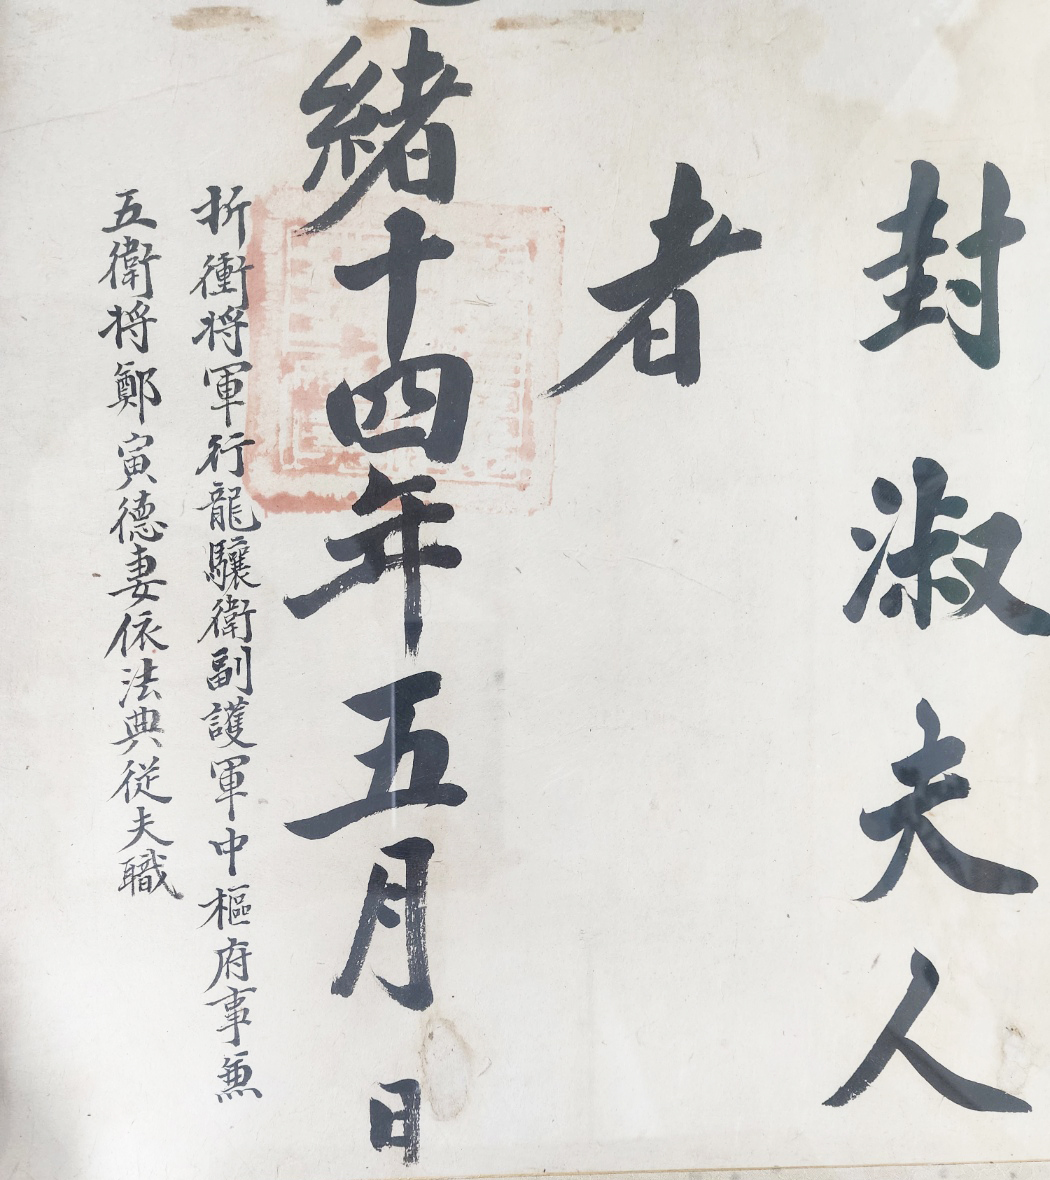 封淑夫人
者
緒十四年五月日
折衝将軍行龍驤衛副護軍中樞府事兼
五衛将鄭寅德妻依法典從夫職